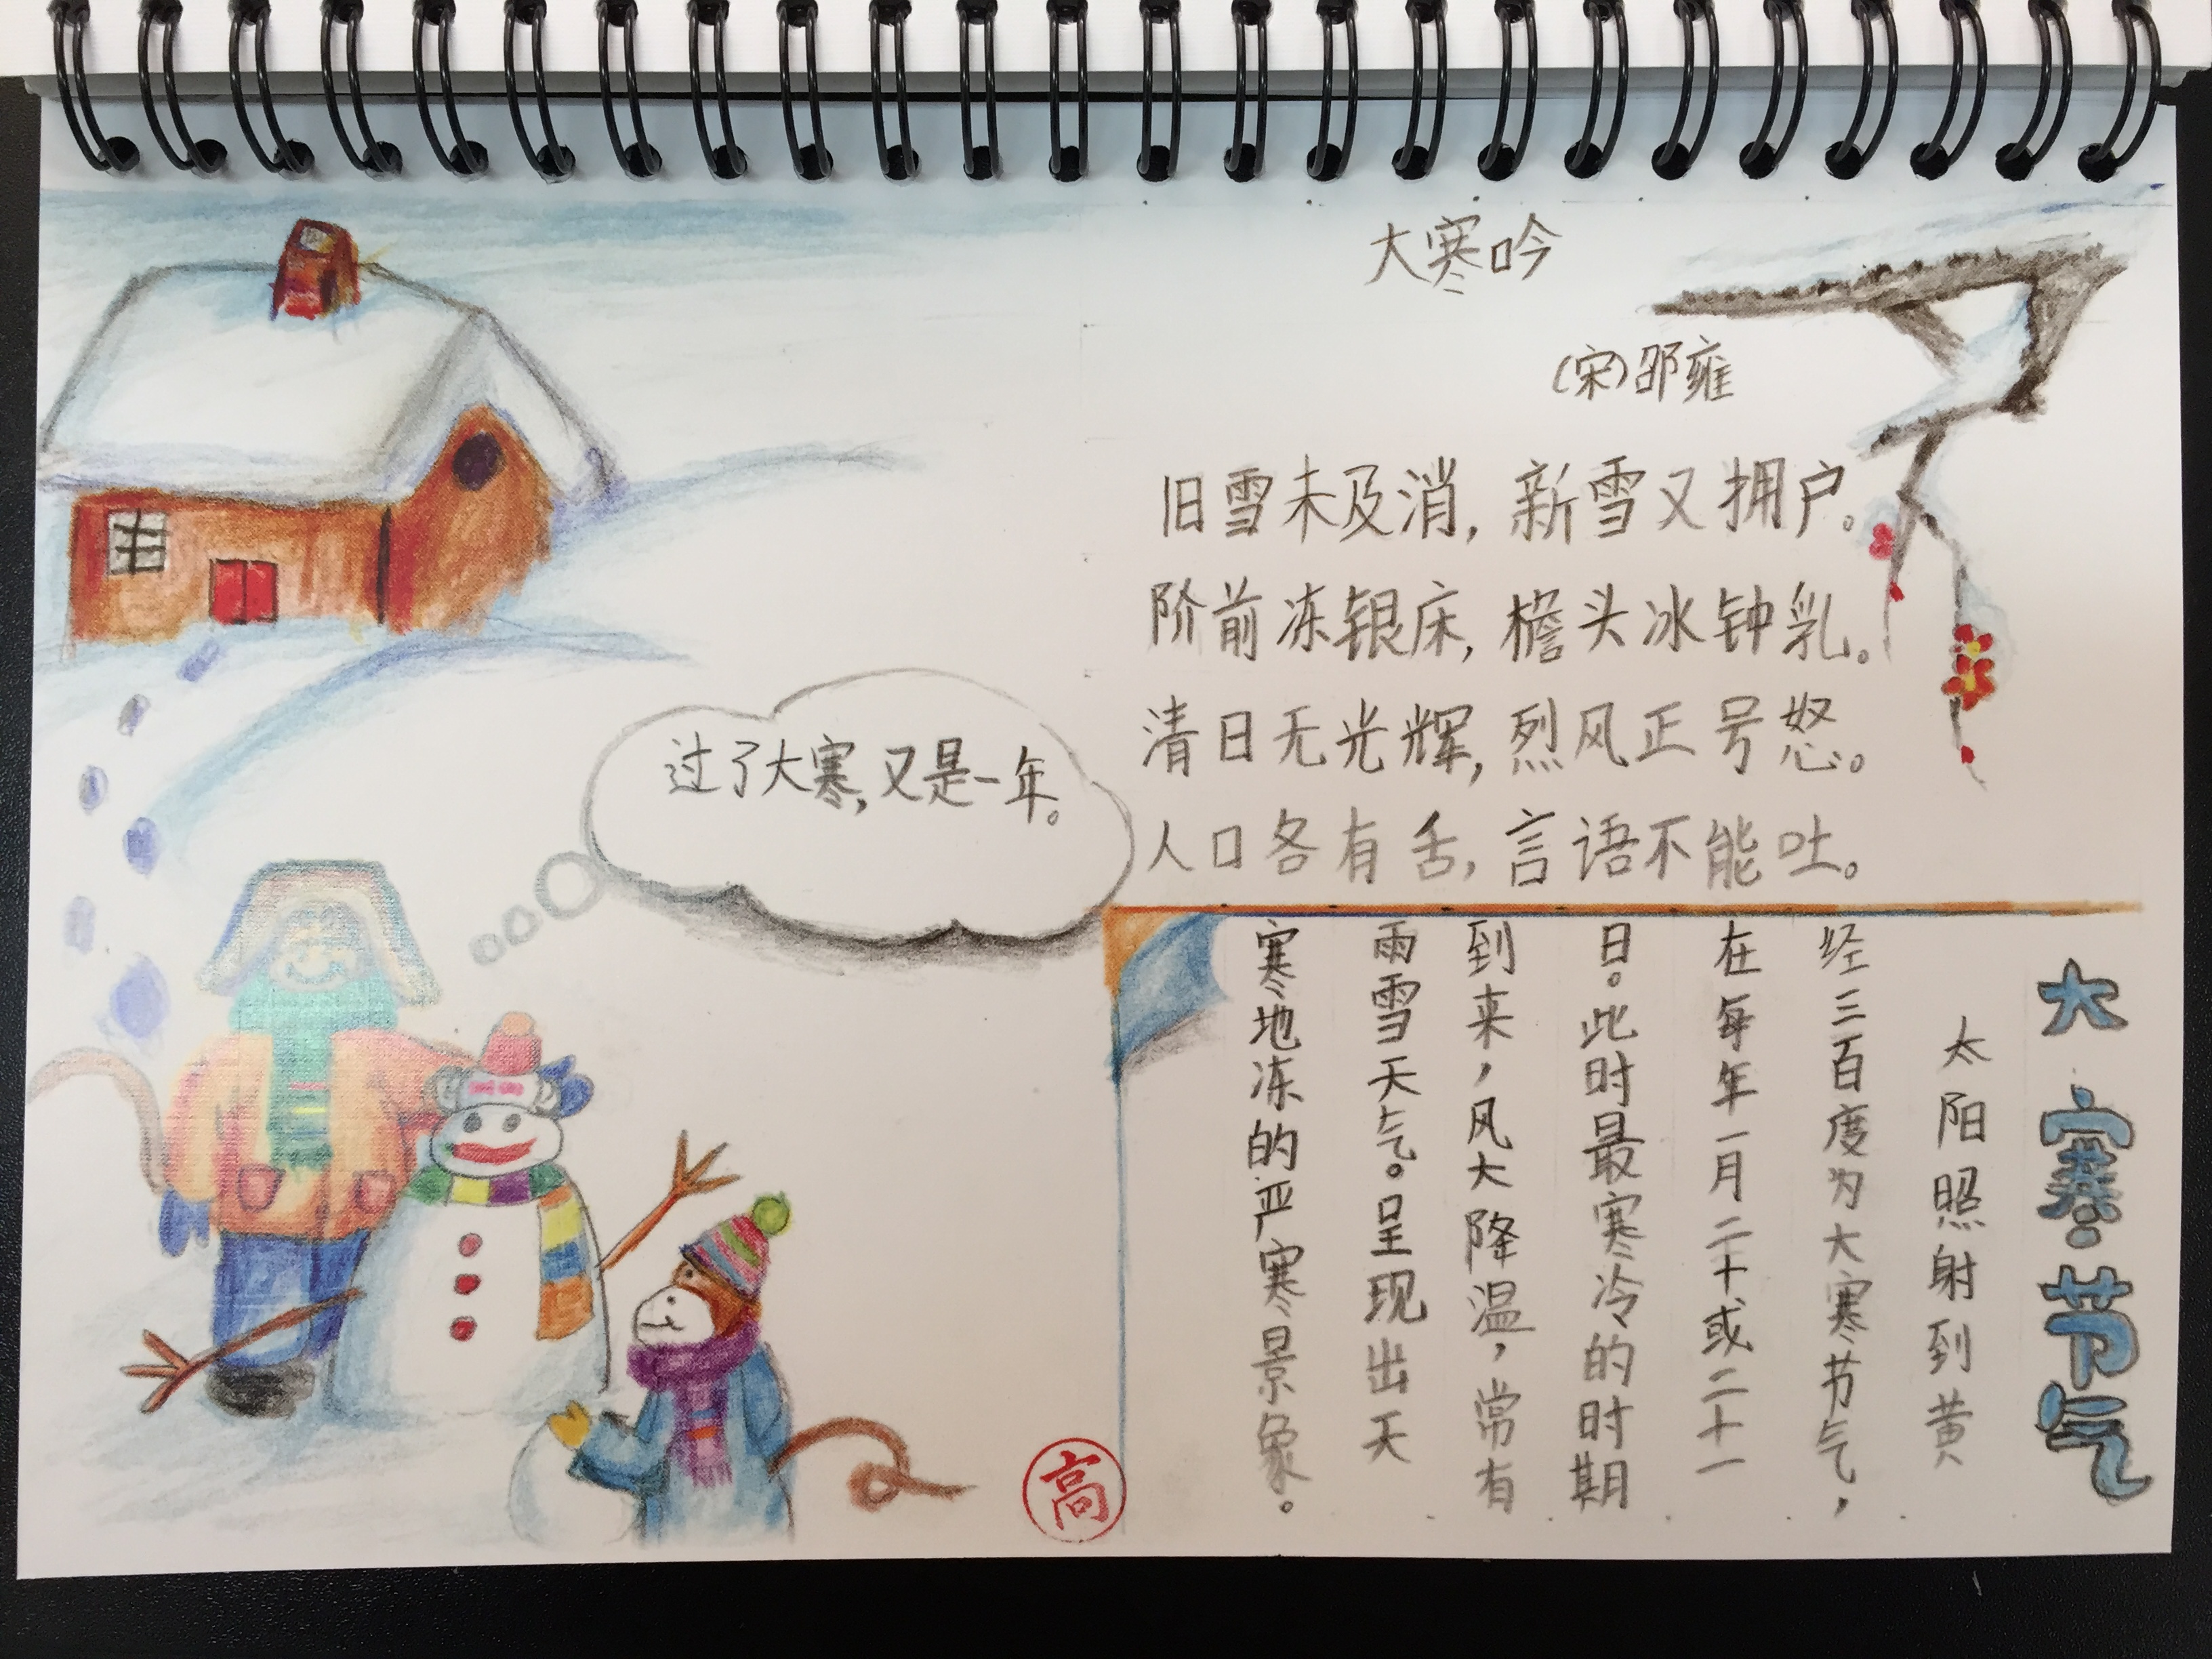 大寒吟
(宋)邵雍
旧雪未及消,新雪又拥户。
阶前冻银床,檐头冰钟乳。
清日无光辉,烈风正号怒。
人口各有舌,言语不能吐。
过了大寒,又是一年。
大寒节气
太阳照射到黄
经三百度为大寒节气,
在每年年一月二十或二十一
日。此时最寒冷的时期
到来,风大降温,常有
雨雪天气。呈现出天
寒地冻的严寒景象。
高